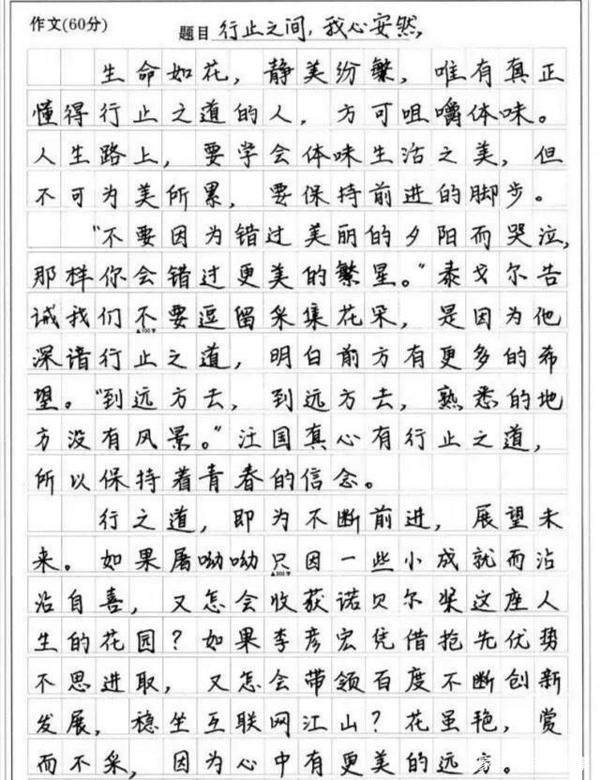 作文(60分)
题目 行止之间,我心安然,
生命如花,静美纷繁,唯有真正
懂得行止之道的人,方可咀嚼体味。
人生路上,要学会体味生活之美,但
不可为美所累,要保持前进的脚步。
“不要因为错过美丽的夕阳而哭泣,
那样你会错过更美的繁星。”泰戈尔告
诫我们不要逗留采集花朵,是因为他
▲100字
深谙行止之道,明白前方有更多的希
望。“到远方去,到远方去,熟悉的地
方没有风景。”汪国真心有行止之道,
所以保持着青春的信念。
行之道,即为不断前进,展望未
来。如果屠呦呦只因一些小成就而沾
▲200字
沾自喜,又怎会收获诺贝尔奖这座人
生的花园?如果李彦宏凭借抢先优势
不思进取,又怎会带领百度不断创新
发展,稳坐互联网江山?花虽艳,赏
而不采,因为心中有更美的远方。